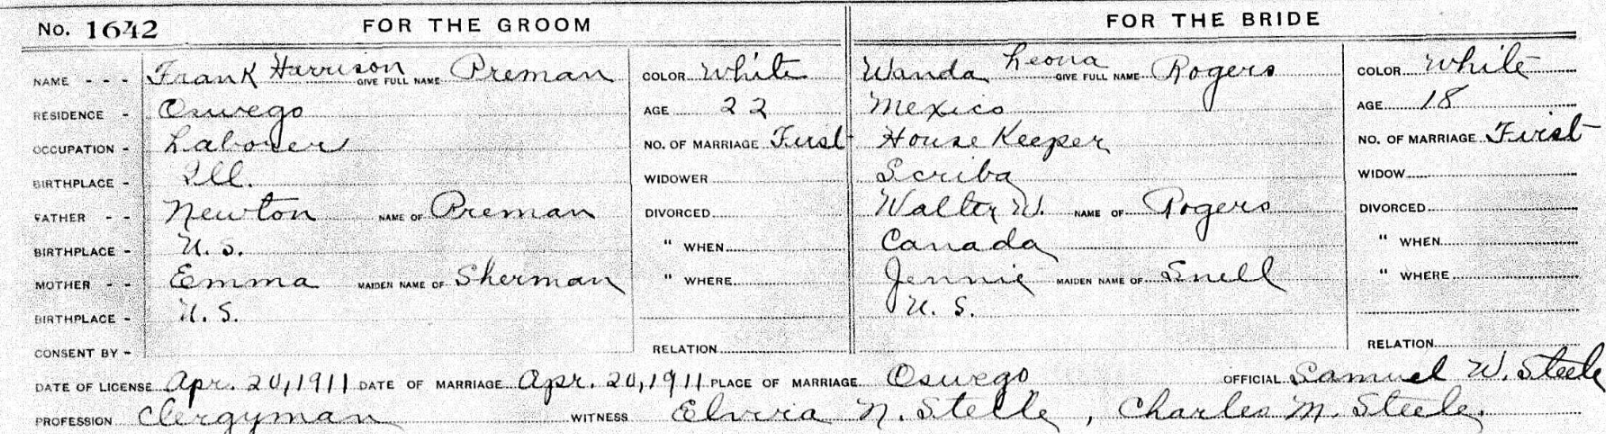 No. 1642 FOR THE GROOM FOR THE BRIDE
NAME - - - Frank Harrison GIVE FULL NAME Preman COLOR White Wanda Leona GIVE FULL NAME Rogers COLOR White
RESIDENCE - Oswego AGE 22 Mexico AGE 18
OCCUPATION - Laborer NO. OF MARRIAGE First House Keeper NO. OF MARRIAGE First
BIRTHPLACE - Ill. WIDOWER Scriba WIDOW
FATHER - - Newton NAME OF Preman DIVORCED Walter W. NAME OF Rogers DIVORCED
BIRTHPLACE - U.S. " WHEN Canada " WHEN
MOTHER - - Emma MAIDEN NAME OF Sherman " WHERE Jennie MAIDEN NAME OF Snell " WHERE
BIRTHPLACE - U.S. U.S.
CONSENT BY - RELATION RELATION
DATE OF LICENSE Apr. 20, 1911 DATE OF MARRIAGE Apr. 20, 1911 PLACE OF MARRIAGE Oswego OFFICIAL Samuel W. Steele
PROFESSION Clergyman WITNESS Elvira N. Steele, Charles M. Steele.